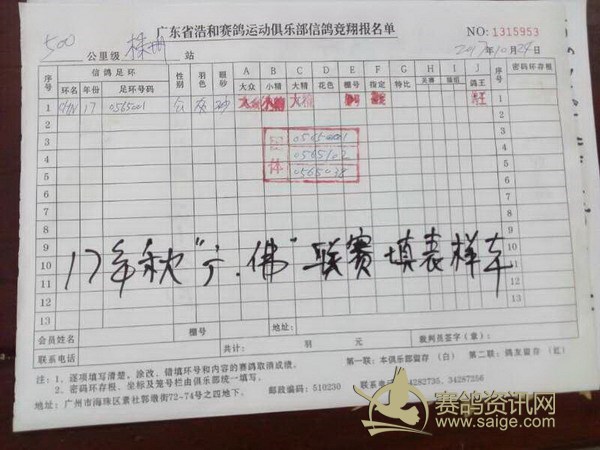 广东省浩和赛鸽运动俱乐部信鸽竞翔报名单
NO: 1315953
500 公里级 株州 站
2017年10月24日
序号 信鸽足环 性别 羽色 眼砂 A B C D E F G H I J 密码环存根
环名 年份 足环号码 大众 小精 大精 花色 棚号 指定 特比 鸽王
1 CHN 17 0565001 灰 砂 1
2 2
3 团体 0565001 3
4 0565102 4
5 0565038 5
6 6
7 7
8 8
9 9
10 10
11 11
12 12
13 13
17年秋“广.佛”联赛填表样本
会员姓名 棚号 地址:
联系电话 共计: 羽 元 裁判员签字(章):
第一联:本俱乐部留存 (白) 第二联:鸽友留存 (红)
注:1、逐项填写清楚,涂改、错填环号和内容的赛鸽取消成绩。
2、密码环存根、坐标及笼号栏由俱乐部统一填写。
地址:广州市海珠区素社郭墩街72-74号之四地下。 邮政编码:510230 联系电话: 34282735、34287256
赛鸽资讯网
www.saige.com